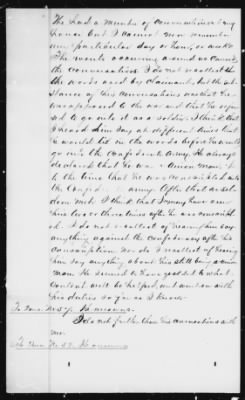 We had a number of conversations at my
house but I cannot now remember
any particular day or hour, or week.
The events occurring around us caused
the conversations. I do not recollect the
the words used by claimant, but the sub-
stance of his conversations was that he
was opposed to the war and that he refused
to go into it as a soldier. I think that
I heard him say at different times that
he would lie in the woods before he would
go into the Confederate Army. He always
declared that he was a Union man up
to the time that he was conscripted into
the Confed. army. After that he seldom
met. I think that I may have seen
him two or three times after he was conscript-
ed. I do not recollect of hearing him say
anything against the Confed- after the
conscription nor do I recollect of hearing
him say anything about his still being a Union
man. He seemed to have yielded to what
could not well be helped, and went on with
his duties so far as I know.
To Ques. No. 57. He answers.
I do not further than his connections with
me.
To Ques. No. 58. He answers